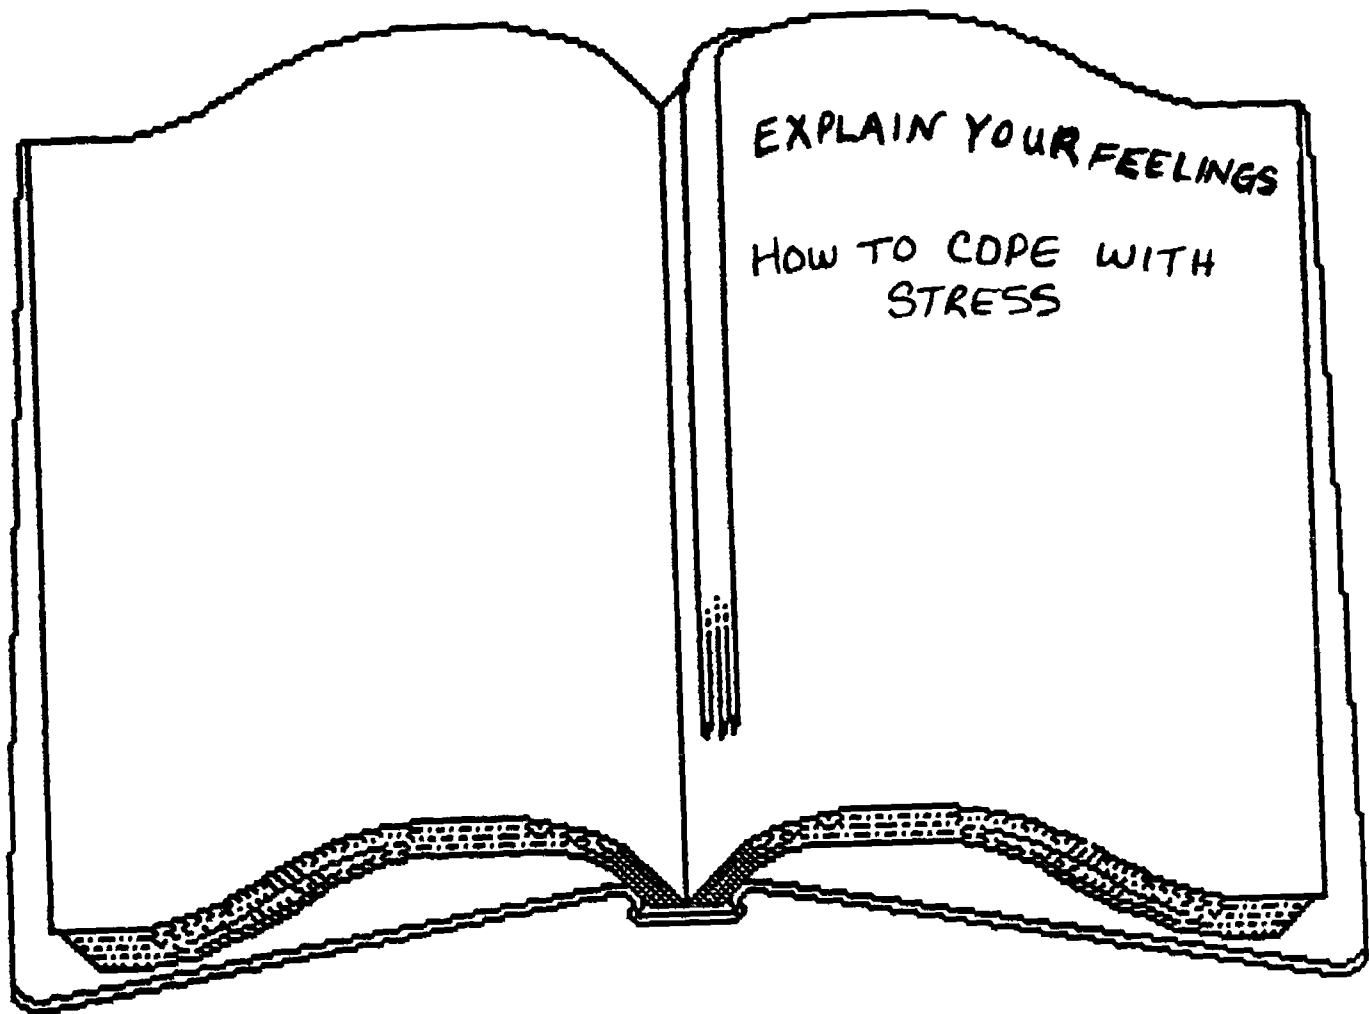 EXPLAIN YOUR FEELINGS
HOW TO COPE WITH
STRESS